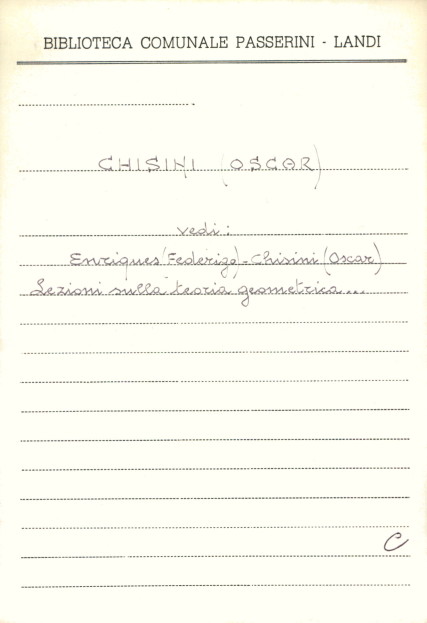 BIBLIOTECA COMUNALE PASSERINI - LANDI
CHISINI (OSCAR)
vedi:
Enriques (Federigo) - Chisini (Oscar)
Lezioni sulla teoria geometrica...
C